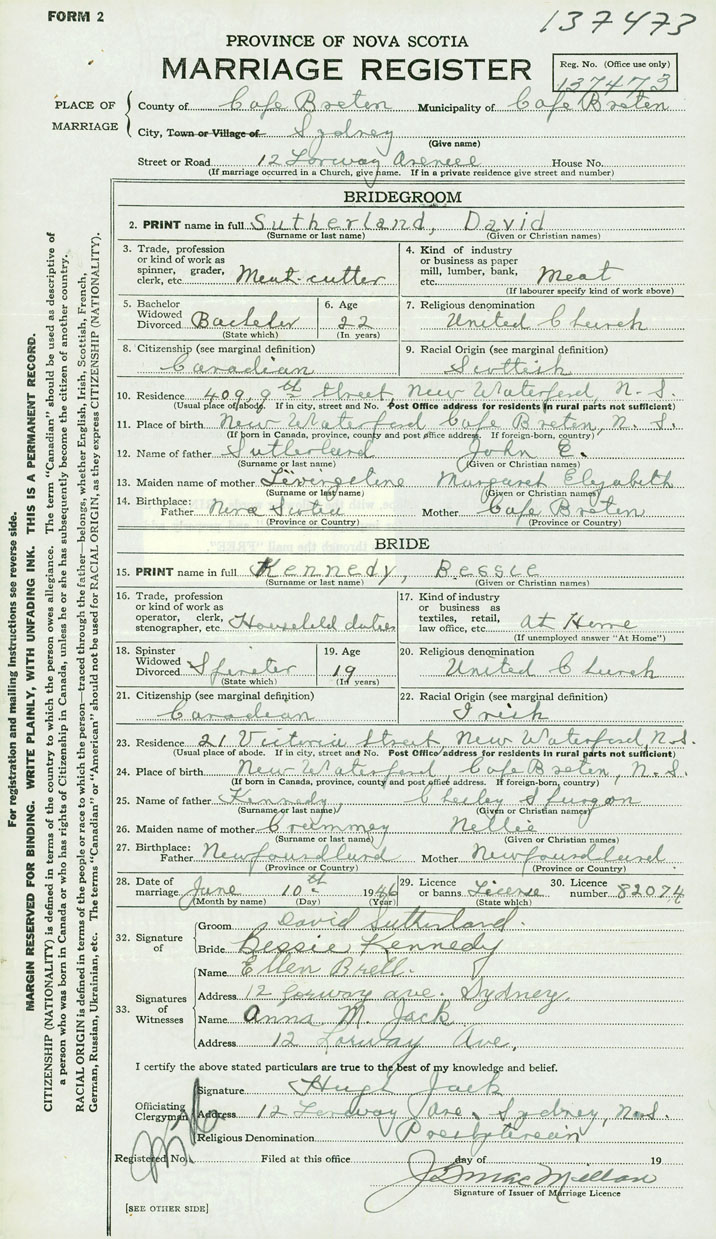 FORM 2
137473
PROVINCE OF NOVA SCOTIA
MARRIAGE REGISTER
Reg. No. (Office use only)
137473
PLACE OF MARRIAGE
County of Cape Breton Municipality of Cape Breton
City, Town or Village of Sydney
(Give name)
Street or Road 12 Lorway Avenue House No.
(If marriage occurred in a Church, give name. If in a private residence give street and number)
BRIDEGROOM
2. PRINT name in full Sutherland, David
(Surname or last name) (Given or Christian names)
3. Trade, profession or kind of work as spinner, grader, clerk, etc. Meat-cutter
4. Kind of industry or business as paper mill, lumber, bank, etc. Meat
(If labourer specify kind of work above)
5. Bachelor Widowed Divorced Bachelor
(State which)
6. Age 22
(In years)
7. Religious denomination
United Church
8. Citizenship (see marginal definition)
Canadian
9. Racial Origin (see marginal definition)
Scottish
10. Residence 409, 9th Street, New Waterford, N. S.
(Usual place of abode. If in city, street and No. Post Office address for residents in rural parts not sufficient)
11. Place of birth New Waterford Cape Breton, N. S.
(If born in Canada, province, county and post office address. If foreign-born, country)
12. Name of father Sutherland John E.
(Surname or last name) (Given or Christian names)
13. Maiden name of mother Livingstone Margaret Elizabeth
(Surname or last name) (Given or Christian names)
14. Birthplace: Father Nova Scotia Mother Cape Breton
(Province or Country) (Province or Country)
BRIDE
15. PRINT name in full Kennedy, Bessie
(Surname or last name) (Given or Christian names)
16. Trade, profession or kind of work as operator, clerk, stenographer, etc. Household duties
17. Kind of industry or business as textiles, retail, law office, etc. At Home
(If unemployed answer "At Home")
18. Spinster Widowed Divorced Spinster
(State which)
19. Age 19
(In years)
20. Religious denomination
United Church
21. Citizenship (see marginal definition)
Canadian
22. Racial Origin (see marginal definition)
Irish
23. Residence 21 Victoria Street, New Waterford, N.S.
(Usual place of abode. If in city, street and No. Post Office address for residents in rural parts not sufficient)
24. Place of birth New Waterford, Cape Breton, N. S.
(If born in Canada, province, county and post office address. If foreign-born, country)
25. Name of father Kennedy, Chesley Spurgon
(Surname or last name) (Given or Christian names)
26. Maiden name of mother Crummey Nellie
(Surname or last name) (Given or Christian names)
27. Birthplace: Father Newfoundland Mother Newfoundland
(Province or Country) (Province or Country)
28. Date of marriage June 10th 1946
(Month by name) (Day) (Year)
29. Licence or banns License
(State which)
30. Licence number 82074
32. Signature of
Groom David Sutherland.
Bride Bessie Kennedy
33. Signatures of Witnesses
Name Ellen Brell.
Address 12 Lorway ave. Sydney.
Name Anna M. Jack
Address 12 Lorway Ave,
I certify the above stated particulars are true to the best of my knowledge and belief.
Officiating Clergyman
Signature Hugh Jack
Address 12 Lorway Ave, Sydney, N.S.
Religious Denomination Presbyterian
Registered No. Filed at this office day of 19
Signature of Issuer of Marriage Licence
[SEE OTHER SIDE]
For registration and mailing instructions see reverse side.
MARGIN RESERVED FOR BINDING. WRITE PLAINLY, WITH UNFADING INK. THIS IS A PERMANENT RECORD.
CITIZENSHIP (NATIONALITY) is defined in terms of the country to which the person owes allegiance. The term "Canadian" should be used as descriptive of
a person who was born in Canada or who has rights of Citizenship in Canada, unless he or she has subsequently become the citizen of another country.
RACIAL ORIGIN is defined in terms of the people or race to which the person—traced through the father—belongs, whether English, Irish, Scottish, French,
German, Russian, Ukrainian, etc. The terms "Canadian" or "American" should not be used for RACIAL ORIGIN, as they express CITIZENSHIP (NATIONALITY).